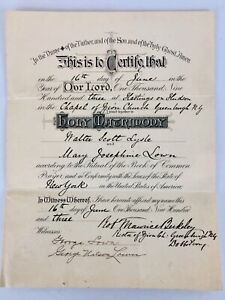 In the Name of the Father, and of the Son and of the Holy Ghost, Amen.
This is to Certify, that
on the 16th day of June in the
Year of Our Lord, One Thousand Nine
Hundred and three at Hastings on Hudson
in the Chapel of Zion Church Greenburgh NY
Holy Matrimony
Walter Scott Lyle
and
Mary Josephine Lown
according to the Ritual of the Book of Common
Prayer; and in Conformity with the Laws of the State of
New York in the United States of America.
In Witness Whereof, I have hereunto affixed my name this
16th day of June One Thousand Nine Hundred
and three
Witnesses Robt Maurice Berkeley
George Lown Rector of Zion Ch. Greenburgh NY
George Nelson Lown Dobbs Ferry